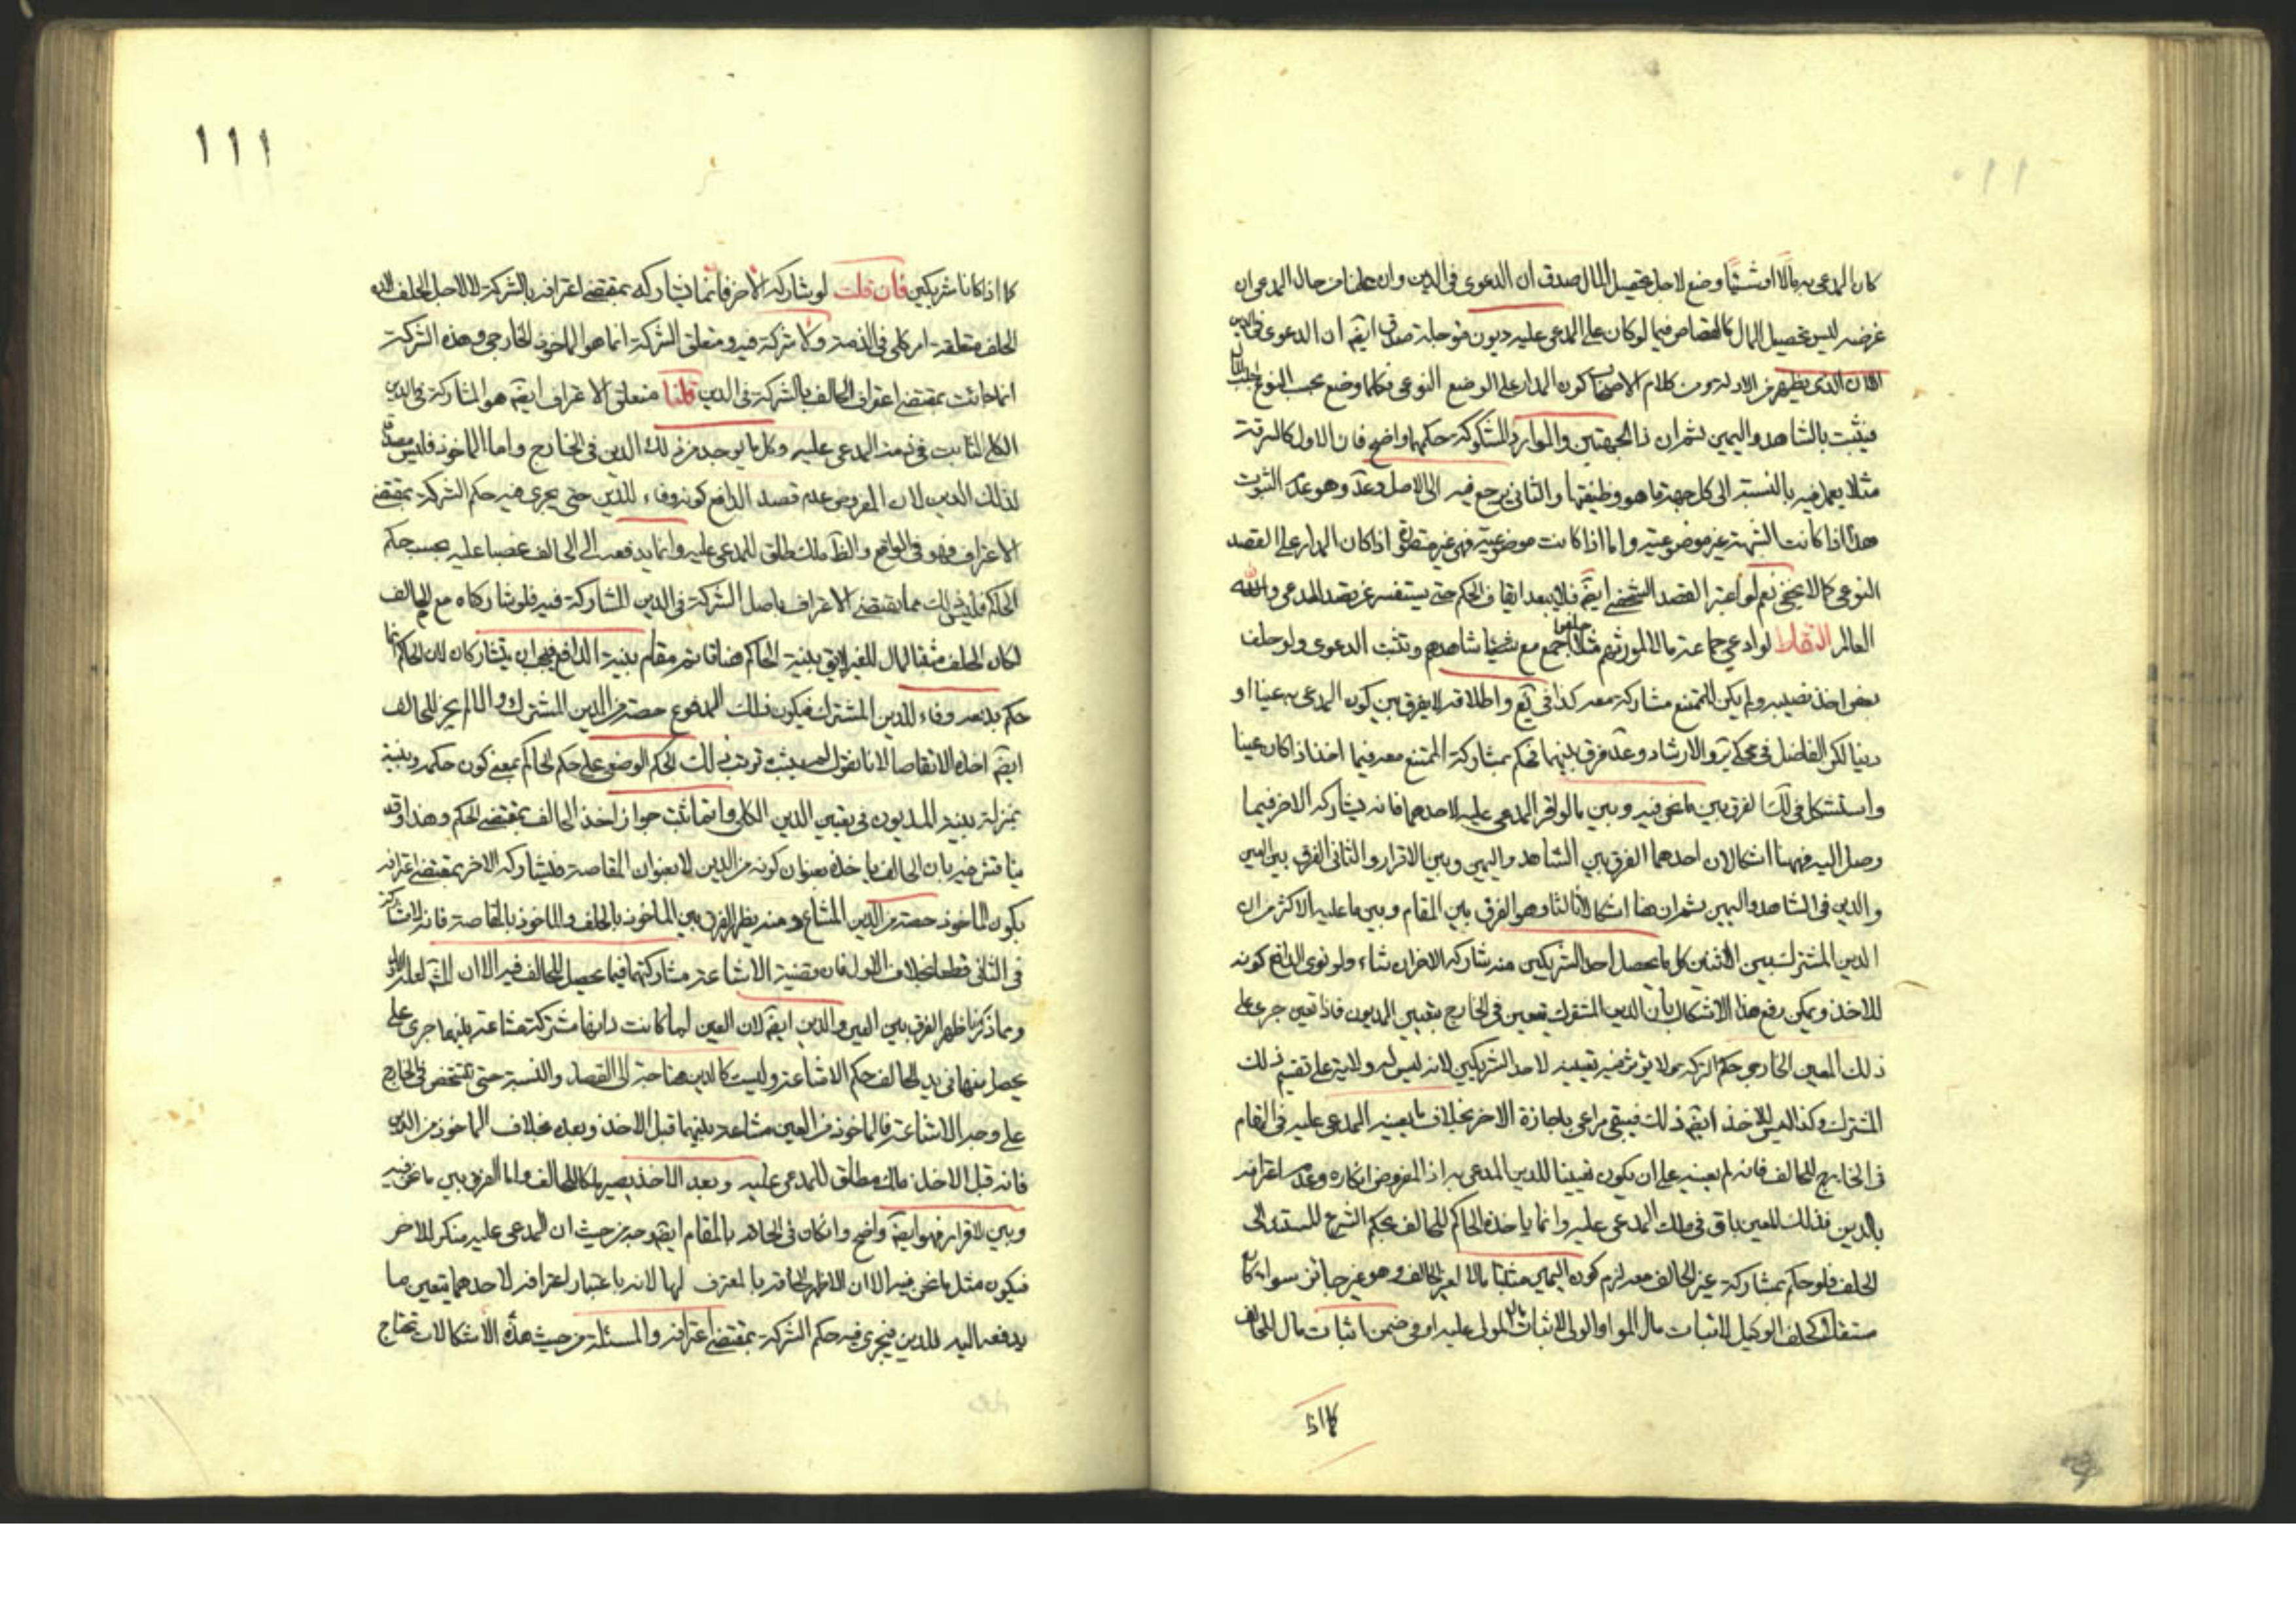 ١١٠
كان المدعى به مالا او شيئا وضع لاجل تحصيل المال صدق ان الدعوى في الدين وان علمنا من حال المدعى ان
غرضه ليس تحصيل المال كالقصاص فيما لو كان على المدعى عليه ديون فتوجه صدق ايضا ان الدعوى في الدين
الا ان الذي يظهر من الادلة ومن كلام الاصحاب كون المدار على الوضع النوعي فكلما وضع بحسب النوع لجلب المال
فيثبت بالشاهد واليمين ثم ان ذا الجهتين والموارد المشكوكة حكمهما واضح فان الاول كالسرقة
مثلا يعمل فيه بالنسبة الى كل جهة ما هو وظيفتها والثاني يرجع فيه الى الاصل وعد وهو عدم الثبوت
هذا اذا كانت الشبهة غير موضوعية واما اذا كانت موضوعية فهي غير اذا كان المدار على القصد
النوعي كما لا يخفى نعم لو اعتبر القصد الشخصي ايضا فلا يبعد ايقاف الحكم حتى يستفسر عن قصد المدعى والله
العالم التقاط لو ادعى جماعة مالا لمورثهم مثلا حلفوا جميع مع شاهدهم وتثبت الدعوى ولو حلف
بعض اخذ نصيبه ولم يكن للممتنع مشاركة معه كذا في يع واطلاقه لا يفرق بين كون المدعى به عينا او
دينا لكن الفاضل في محكي ير والارشاد وعد فرق بينهما فحكم بمشاركة الممتنع معه فيما اخذ اذا كان عينا
واستشكل في لك الفرق بين ما نحن فيه وبين ما لو اقر المدعى عليه لاحدهما فانه يشاركه الاخر فيما
وصل اليه فههنا اشكالان احدهما الفرق بين الشاهد واليمين وبين الاقرار والثاني الفرق بين العين
والدين في الشاهد واليمين ثم ان هنا اشكالا ثالثا وهو الفرق بين المقام وبين ما عليه الاكثر من ان
الدين المشترك بين الاثنين كل ما يحصل احد الشريكين منه شاركه الاخر ان شاء ولو نوى الدافع كونه
للاخذ ويمكن رفع هذا الاشكال بان الدين المشترك يتعين في الخارج بتعيين المديون فاذا تعين جرى على
ذلك المعين الخارجي حكم الشركة ولا يؤثر فيه تعيينه لاحد الشريكين لانه ليس له ولاية على تقسيم ذلك
المشترك وكذا ليس للاخذ ايضا ذلك فيبقى مراعى باجازة الاخر بخلاف ما يعينه المدعى عليه في المقام
في الخارج للحالف فانه لم يعينه على ان يكون تعيينا للدين المدعى به اذ المفروض انكاره وعدم اعترافه
بالدين فذلك المعين باق في ملك المدعى عليه وانما ياخذه الحاكم للحالف بحكم الشرع المستند الى
الحلف فلو حكم بمشاركة غير الحالف معه لزم كون اليمين مثبتا مالا لغير الحالف وهو غير جائز سواء كان
مستقلا كحلف الوكيل لاثبات مال الموكل او الولي لاثبات مال المولى عليه او في ضمن اثبات مال للحالف
كما اذا
١١١
كما اذا كانا شريكين فان قلت لو شاركه الاخر فانما يشاركه بمقتضى اعترافه بالشركة لا لاجل الحلف لان
الحلف متعلقه امر كلي في الذمة ولا شركة فيه ومتعلق الشركة انما هو الماخوذ الخارجي وهذه الشركة
انما جائت بمقتضى اعتراف الحالف بالشركة في الدين قلنا متعلق الاعتراف ايضا هو المشاركة في الدين
الكلي الثابت في ذمة المدعى عليه وكل ما يوجد من ذلك الدين في الخارج واما الماخوذ فليس مصداقا
لذلك الدين لان المفروض عدم قصد الدافع كونه وفاء للدين حتى يجرى فيه حكم الشركة بمقتضى
الاعتراف فهو في الواقع والظ ملك طلق للمدعى عليه وانما يدفعه الى الحالف غصبا عليه بحسب حكم
الحاكم فليس ذلك مما يقتضى الاعتراف باصل الشركة في الدين المشاركة فيه فلو شاركاه مع الحالف
لكان الحلف مثبتا لمال للغير لا يق بنية الحاكم هنا قائمة مقام بنية الدافع فيجب ان يتشاركان لان الحاكم انما
حكم بدفعه وفاء للدين المشترك فيكون ذلك المدفوع حصة من الدين المشترك والا لم يجز للحالف
ايضا اخذه الا تقاصا لانا نقول لم يثبت ترتب ذلك الحكم الوضعي على حكم الحاكم بمعنى كون حكمه ونيته
بمنزلة نية المديون في تعيين الدين الكلي وانما ثبت جواز اخذ الحالف بمقتضى الحكم وهذا وقد
يناقش فيه بان الحالف ياخذه بعنوان كونه من الدين لا بعنوان المقاصة فيشاركه الاخر بمقتضى اعترافه
بكون الماخوذ حصة من الدين المشاع ومنه يظهر الفرق بين الماخوذ بالحلف والماخوذ بالمقاصة فانه لا شركة
في الثاني قطعا بخلاف الاول فان مقتضية الاشاعة مشاركتهما فيما يحصل للحالف فيه الا ان
ومما ذكرنا ظهر الفرق بين العين والدين ايضا لان العين لما كانت ذاتها مشتركة مشاعة بينهما جرى على
يحصل منها في يد الحالف حكم الاشاعة وليست كالدين محتاجة الى القصد والنسبة حتى تتشخص في الخارج
على وجه الاشاعة فالماخوذ من العين مشاعة بينهما قبل الاخذ وبعده بخلاف الماخوذ من الدين
فانه قبل الاخذ مال مطلق للمدعى عليه وبعد الاخذ يصير ملكا للحالف واما الفرق بين ما نحن فيه
وبين الاقرار فهو ايضا واضح وان كان في الحاقه بالمقام ايضا وجه من حيث ان المدعى عليه منكر للاخر
فيكون مثل ما نحن فيه الا ان الاظهر الحاقه بالمعترف لهما لانه باعتبار اعترافه لاحدهما يتعين ما
يدفعه اليه للدين فيجرى فيه حكم الشركة بمقتضى اعترافه والمسئلة من حيث هذه الاشكالات تحتاج